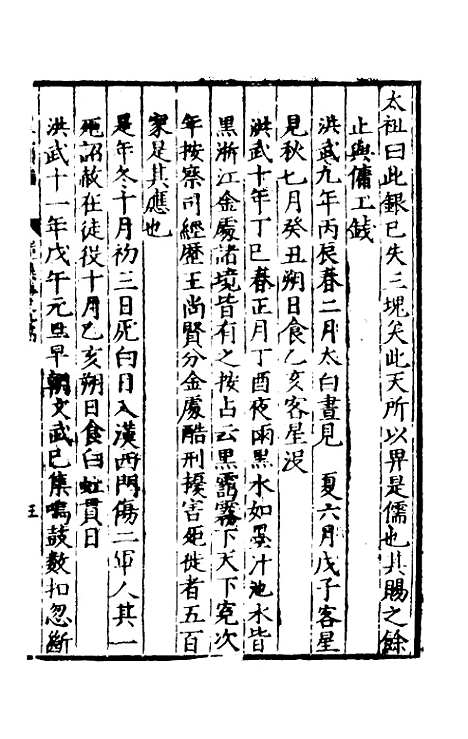 太祖曰此銀已失二塊矣此天所以畀是儒也其賜之餘
止與傭工錢
洪武九年丙辰春二月太白晝見　夏六月戊子客星
見秋七月癸丑朔日食乙亥客星沒
洪武十年丁巳春正月丁酉夜雨黑水如墨汁池水皆
黑浙江金處諸境皆有之按占云黑霜霧下天下寃次
年按察司經歷王尚賢分金處酷刑擾害死徙者五百
家是其應也
是年冬十月初三日死囚日入漢西門傷二軍人其一
死詔赦在徒役十月乙亥朔日食白虹貫日
洪武十一年戊午元旦早朝文武已集鳴鼓數扣忽斷
五